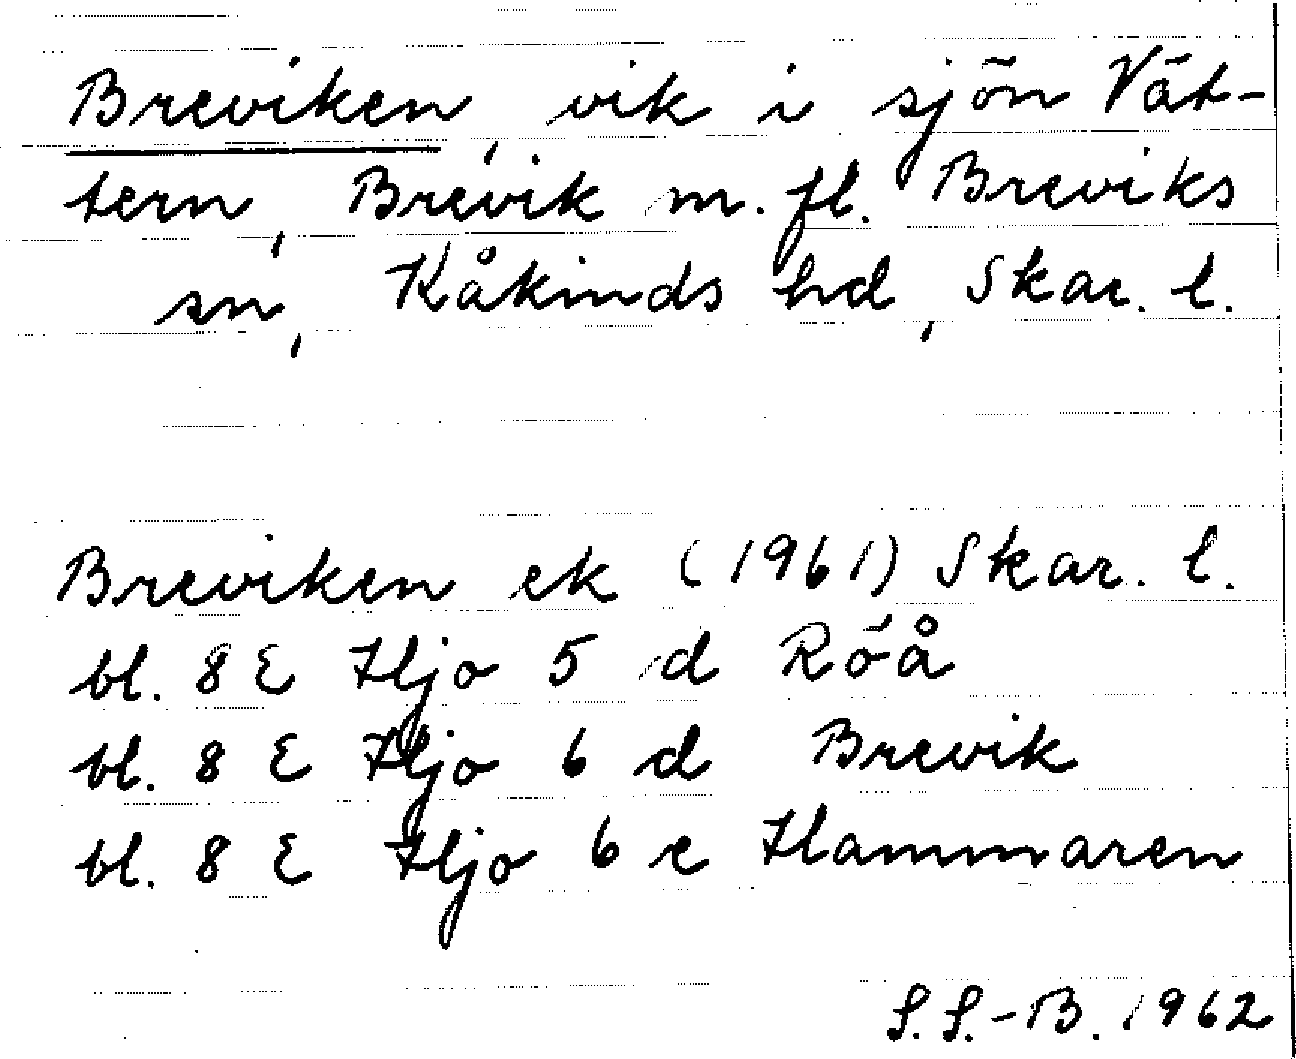 Breviken, vik i sjön Vät-
tern, Brevik m. fl. Breviks
sn, Kåkinds hd, Skar. l.
Breviken ek (1961) Skar. l.
bl. 8 E Hjo 5 d Röå
bl. 8 E Hjo 6 d Brevik
bl. 8 E Hjo 6 e Hammaren
S.S.-B. 1962